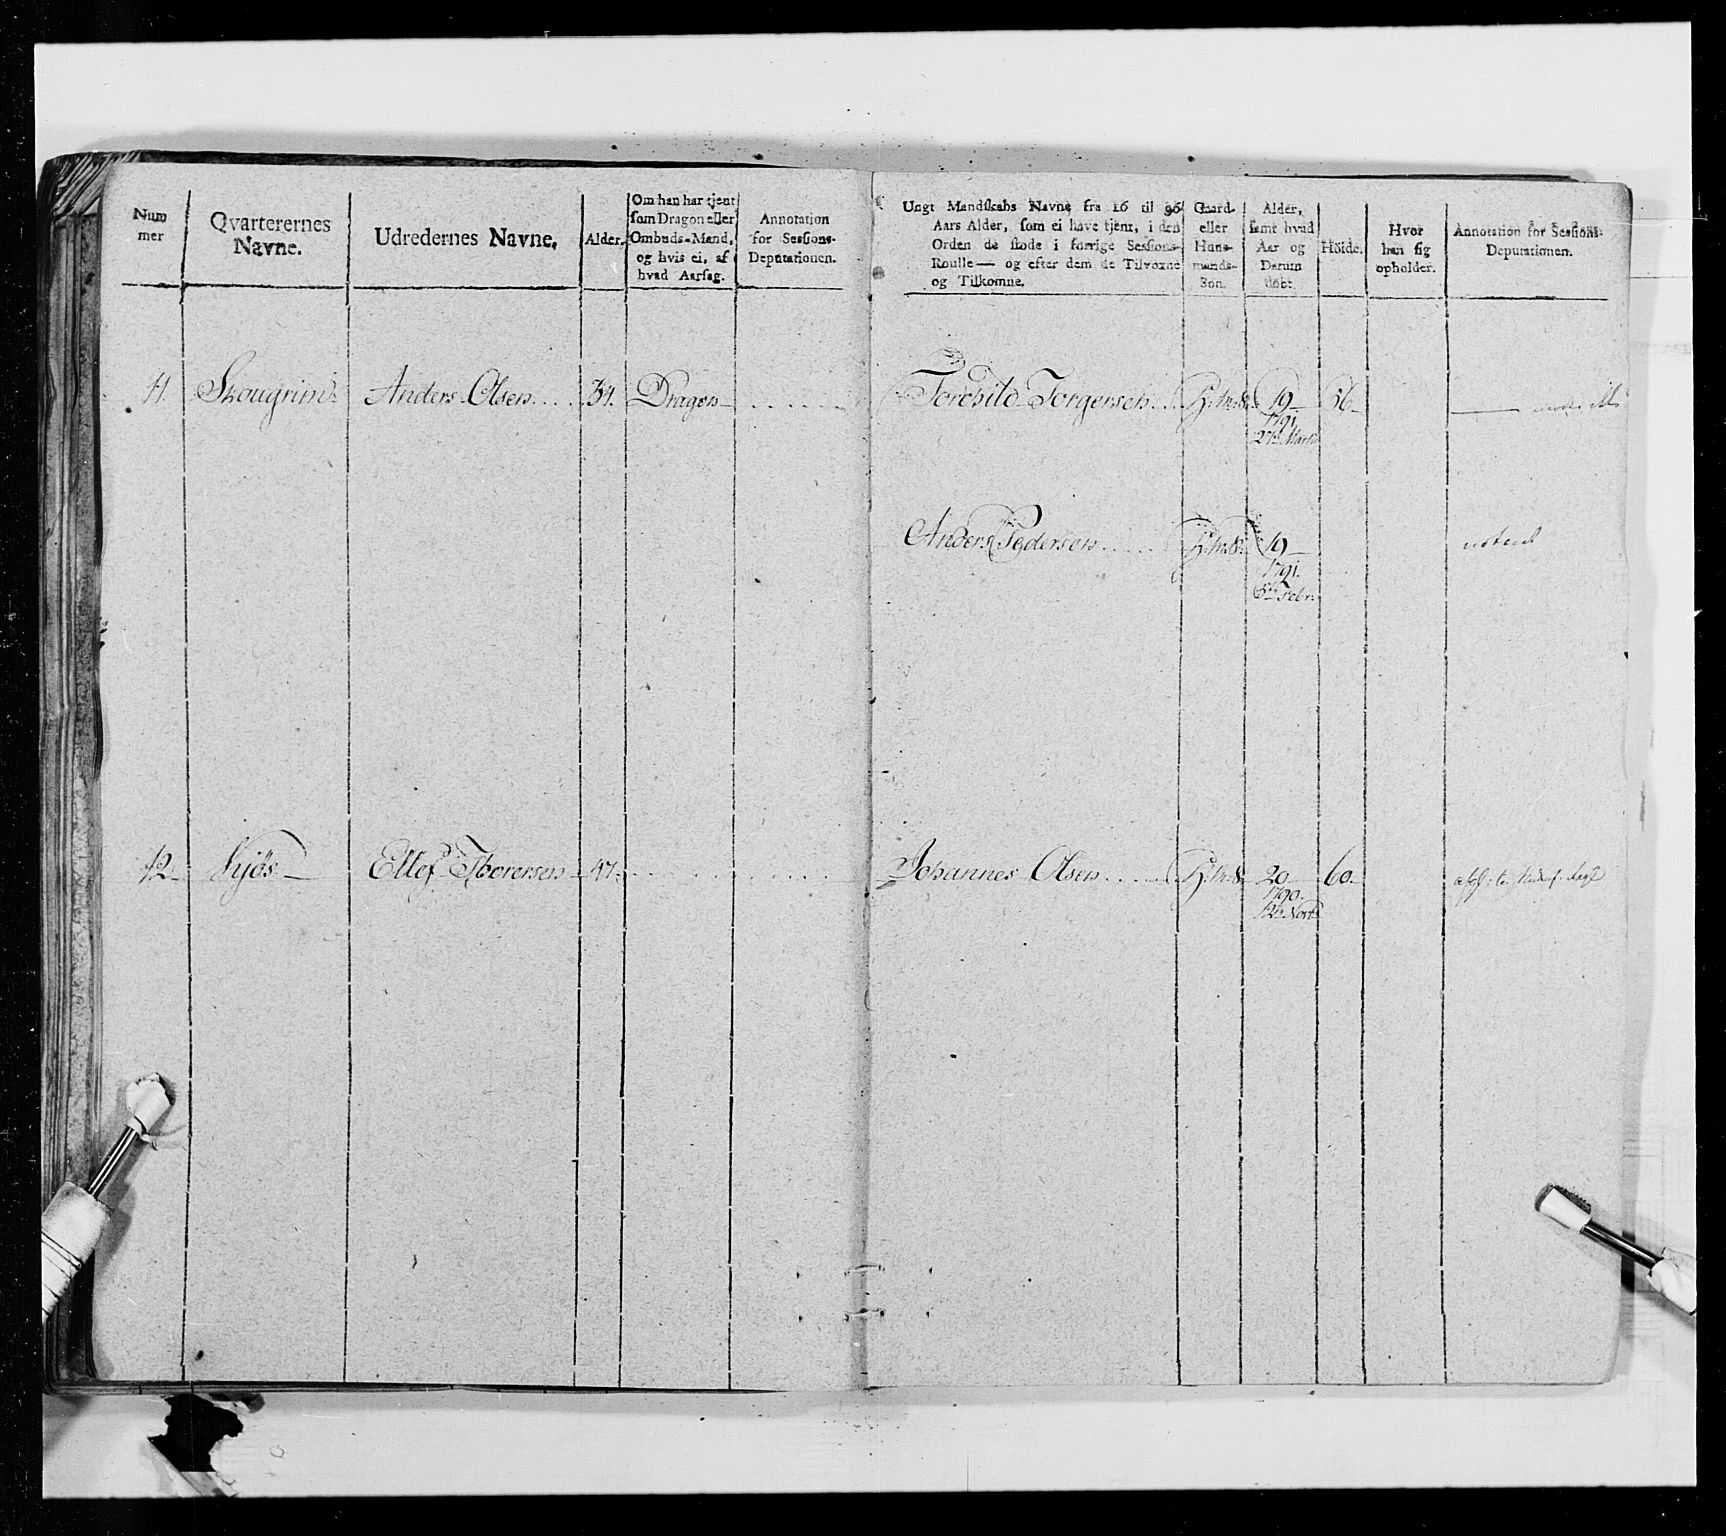 Num
mer
Qvarterernes
Navne.
Udredernes Navne.
Alder.
Om han har tjent
som Dragon eller
Ombuds-Mand,
og hvis ei, af
hvad Aarsag.
Annotation
for Sessions-
Deputationen.
Ungt Mandskabs Navne fra 16 til 36
Aars Alder, som ei have tjent, i den
Orden de stode i forrige Sessions-
Roulle — og efter dem de Tilvoxne
og Tilkomne.
Gaard-
eller
Huus-
mands-
Søn.
Alder,
samt hvad
Aar og
Datum
født.
Høide.
Hvor
han sig
opholder.
Annotation for Sessions-
Deputationen.
41. Skougrim Anders Olsen 34. Dragon Torchild Torgersen H:m:S. 19 56
1791
27de Marti
Anders Pedersen H:m:S. 19
1791.
6te Febr.
42. Kjös Ellef Thoresen 47. Johannes Olsen H:m:S. 20 60
1790.
12te Novb